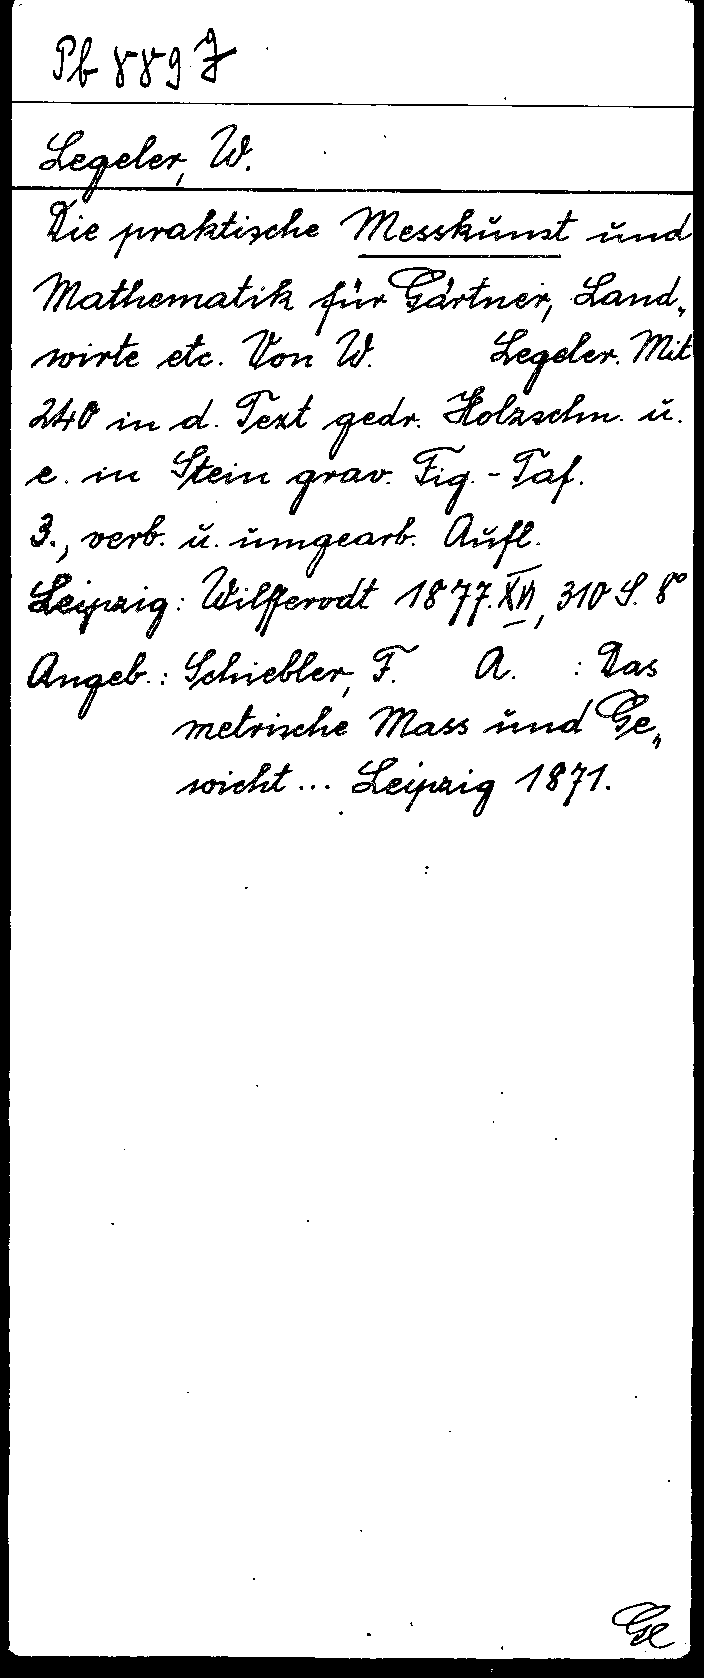 Pb 889 J
Legeler, W.
Die praktische Messkunst und
Mathematik für Gärtner, Land-
wirte etc. Von W. Legeler. Mit
240 in d. Text gedr. Holzschn. u.
e. in Stein grav. Fig.-Taf.
3., verb. u. umgearb. Aufl.
Leipzig: Wilfferodt 1877. XVI, 310 S. 8°
Angeb.: Schiebler, F. A. : Das
metrische Mass und Ge-
wicht... Leipzig 1871.
Ge